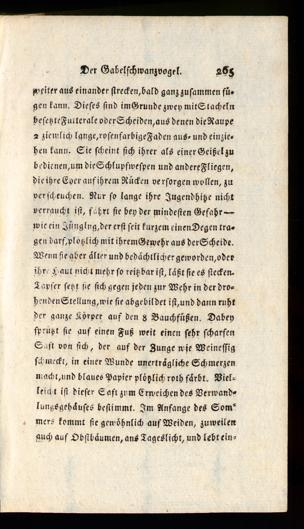 Der Gabelschwanzvogel. 265
weiter aus einander strecken, bald ganz zusammen fü-
gen kann. Dieses sind im Grunde zwey mit Stacheln
besetzte Futterale oder Scheiden, aus denen die Raupe
2 ziemlich lange, rosenfarbige Faden aus- und einzie-
hen kann. Sie scheint sich ihrer als einer Geißel zu
bedienen, um die Schlupfwespen und andere Fliegen,
die ihre Eyer auf ihrem Rücken versorgen wollen, zu
verscheuchen. Nur so lange ihre Jugendhitze nicht
verraucht ist, fährt sie bey der mindesten Gefahr —
wie ein Jüngling, der erst seit kurzem einen Degen tra-
gen darf, plötzlich mit ihrem Gewehr aus der Scheide.
Wenn sie aber älter und bedächtlicher geworden, oder
ihre Haut nicht mehr so reitzbar ist, läßt sie es stecken.
Tapfer setzt sie sich gegen jeden zur Wehr in der dro-
henden Stellung, wie sie abgebildet ist, und dann ruht
der ganze Körper auf den 8 Bauchfüßen. Dabey
sprützt sie auf einen Fuß weit einen sehr scharfen
Saft von sich, der auf der Zunge wie Weinessig
schmeckt, in einer Wunde unerträgliche Schmerzen
macht, und blaues Papier plötzlich roth färbt. Viel-
leicht ist dieser Saft zum Erweichen des Verwand-
lungsgehäuses bestimmt. Im Anfange des Som-
mers kommt sie gewöhnlich auf Weiden, zuweilen
auch auf Obstbäumen, ans Tageslicht, und lebt ein-